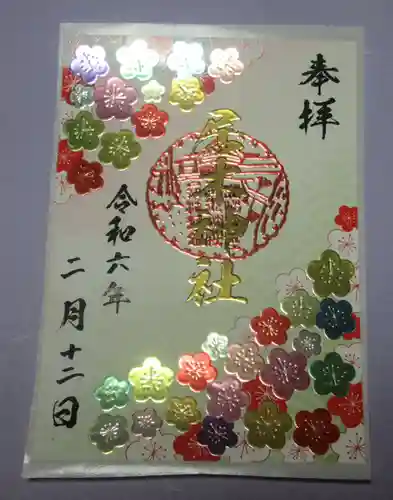 奉拝
居木神社
令和六年
二月十二日